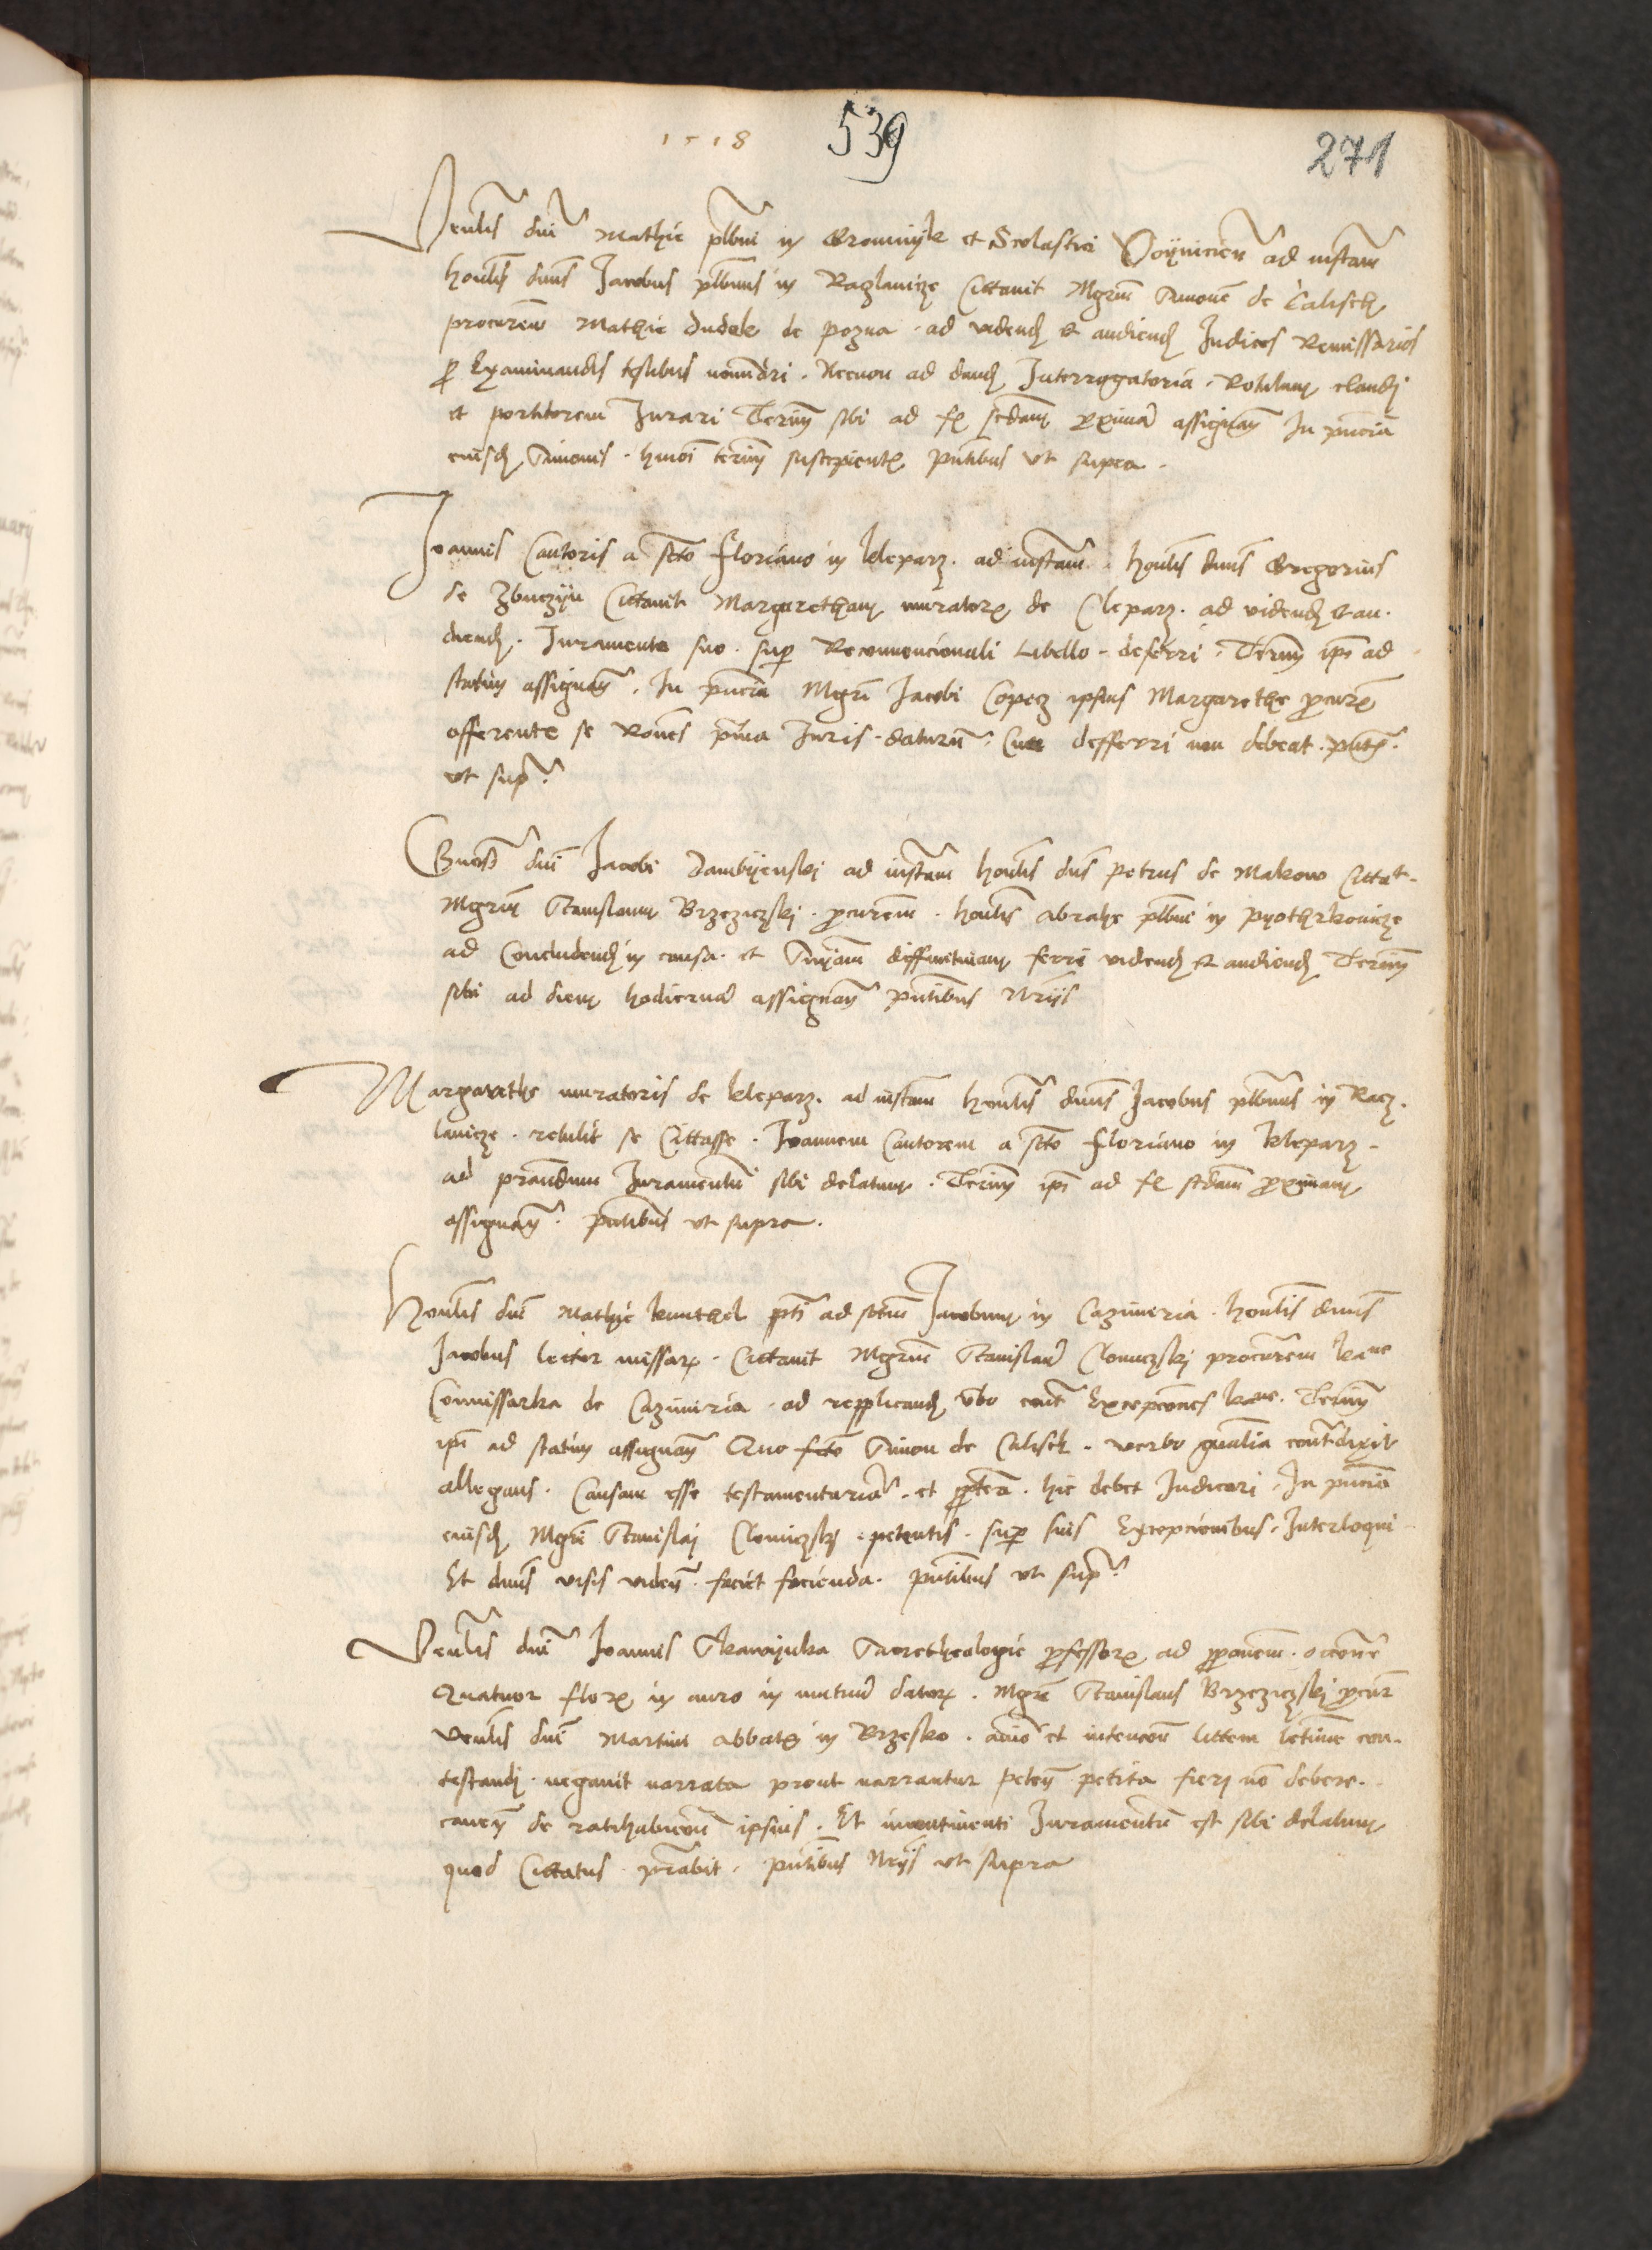 1518 539 271
Venlis dni Mathie plbni in Gromnijk et Scolastici Voijnicien ad instam
honlis dnus Jacobus plbnus in Raczlawicze Cittavit Mgrum Simone de Calisch
procurem Mathie dudek de pozna · ad vidend et audiend Judices Remissarios
p Examinandis testibus nominari · Necnon ad dand Interrogatoria · Rotulum claudi
et portitorem Jurari Terim sibi ad fe scdam pximā assignan In pncia
eiusd Simonis · hmoi terim suscipient pntibus vt supra ·
Joannis Cantoris a scto Floriano in kleparz · ad instam · honlis dnus Gregorius
de Zbuczijn Cittavit Margaretham murator de Cleparz · ad vidend et au-
diend · Juramento suo · sup Reconuencionali Libello · deferri · Terim ipi ad
statim assignan · In pncia Mgri Jacobi Copecz ipsius Margarethe pcur
offerente se Rones pma Juris · daturū · Cur defferri non debeat · pntib ·
vt sup
Gnosi dni Jacobi Dambijenski ad instam honlis dns Petrus de Makow Cittat ·
Mgrum Stanislaum Brzeziczskj · pcurem · honlis Abrahe plbni in pyothrkovicze
ad Concludend in causa · et Snijam diffinitivam ferri vidend et audiend Terim
sibi ad diem hodiernā assignan pntibus Nrijs
Margarethe muratoris de kleparz · ad instam honlis dnus Jacobus plbnus in Racz-
lavicze · retulit se Cittasse · Joannem Cantorem a scto Floriano in kleparz ·
ad prandum Juramentū sibi delatum · Terim ipi ad fe scdam pximam
assignan · pntibus vt supra ·
Honlis dni Mathie kunthel pti ad sctum Jacobum in Cazimeria · honlis dnus
Jacobus lector missar · Cittavit Mgrum Stanislaū Clomczskj procurem kane
Comissarka de Cazimiria · ad replicand vbo cont Excepcones kane · Terim
ipi ad statim assignan Quo fcto Simon de Calisch · verbo gnalia contdixit
allegans · Causam esse testamentariā · et pterea · hic debet Judicari · In pncia
eiusd Mgri Stanislaj Clomiczskj · petentis · sup suis Excepcionibus · Interloqui
Et dnus visis viden · faciet facienda · pntibus vt sup
Venlis dni Joannis Skawijnka Sacretheologie pfessor ad ppnem · occone
Quatuor flor in auro in mutuū dator · Mgri Stanislaus Brzeziczskj pcur
Venlis dni Martini abbatis in Brzesko · aio et intencon littem letime con-
testandj · negavit narrata prout narrantur peten petita fierj nō debere ·
caven de ratihabicon ipsius · Et incontinenti Juramentū est sibi delatum
quod Cittatus · prabit · pntibus Nrijs vt supra